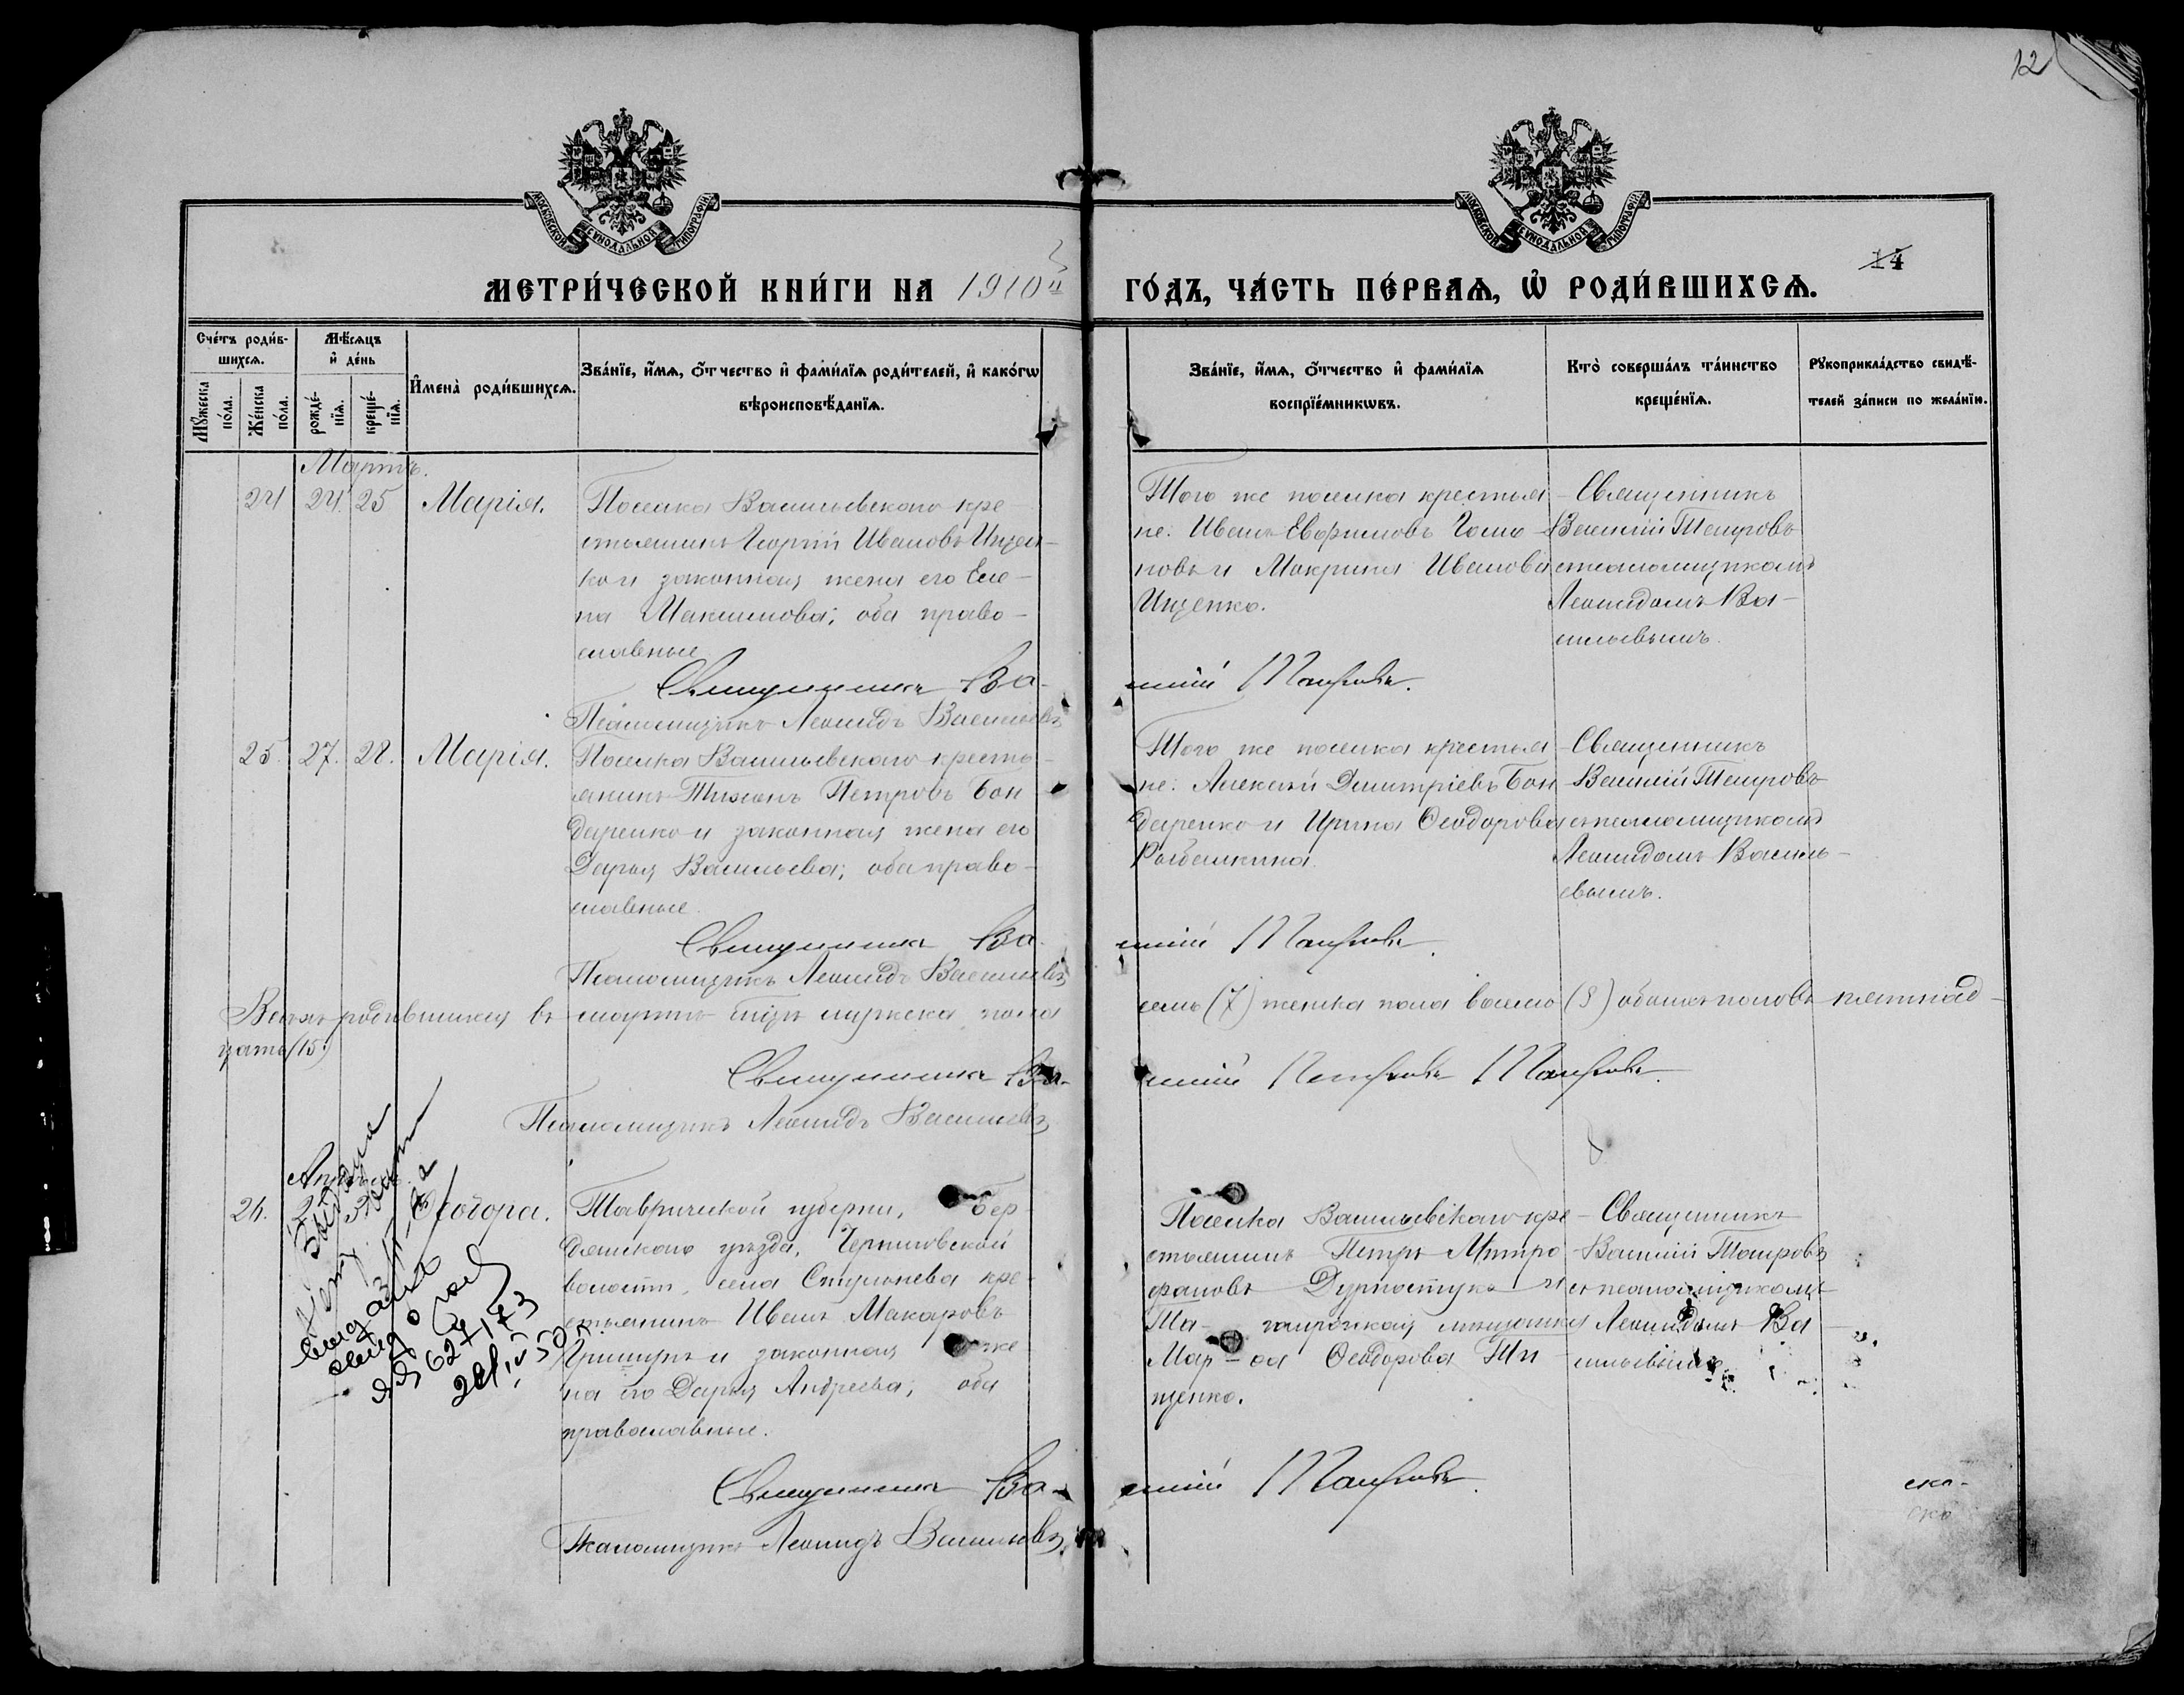 12
МОСКОВСКОЙ СУНОДАЛЬНОЙ ТИПОГРАФІИ
МОСКОВСКОЙ СУНОДАЛЬНОЙ ТИПОГРАФІИ
14
МЕТРИ́ЧЕСКОЙ КНИ́ГИ НА 1910й
ГО́ДЪ, ЧА́СТЬ ПЕ́РВАѦ, Ѡ РОДИ́ВШИХСѦ.
Сче́тъ роди́в-
шихсѧ.
Мꙋ́жеска по́ла.
Же́нска по́ла.
Мѣ́сѧцъ
и҆ де́нь
рожде́-
нїѧ.
креще́-
нїѧ.
И҆мена̀ роди́вшихсѧ.
Зва́нїе, и҆́мѧ, ѻ҆́тчество и҆ фами́лїѧ роди́телей, и҆ како́гѡ
вѣроисповѣ́данїѧ.
Зва́нїе, и҆́мѧ, ѻ҆́тчество и҆ фами́лїѧ
воспрїе́мникѡвъ.
Кто̀ соверша́лъ та́инство
креще́нїѧ.
Рꙋкоприкла́дство свидѣ́-
телей за́писи по жела́нїи.
Мартъ.
24 24. 25 Марія.
Поселка Васильевскаго кре
стьянинъ Георгій Ивановъ Ищен-
ко и законная жена его Еле-
на Максимова; оба право-
славные
Того же поселка крестья-
не: Иванъ Евфимовъ
новъ и Макрина Иванова
Ищенко.
Священникъ
Василій Петровъ
с псаломщикомъ
Леонидомъ Ва-
сильевымъ.
Священникъ Ва-
силій Петровъ.
Псаломщикъ Леонидъ Васильевъ
25. 27. 28. Марія.
Поселка Васильевскаго кресть-
янинъ Тихонъ Петровъ Бон
даренко и законная жена его
Дарья Васильева; оба право-
славные.
Того же поселка крестья-
не: Алексѣй Димитріевъ Бон-
даренко и Ирина Ѳеодорова
Священникъ
Василій Петровъ
с псаломщикомъ
Леонидомъ Василь-
евымъ.
Священникъ Ва-
силій Петровъ.
Псаломщикъ Леонидъ Васильевъ
Всѣхъ родившихся въ мартѣ мужеска пола
семь (7) женска пола восемь (8) обоихъ половъ пятнад-
цать (15)
Священникъ Ва-
силій Петровъ Петровъ.
Псаломщикъ Леонидъ Васильевъ
26.
Таврической губерніи, Бер-
дянскаго уѣзда, Черниговской
волости, села кре-
стьянинъ Иванъ Макаровъ
и законная же-
на его Дарья Андреева; оба
православные.
Поселка Васильевскаго кре-
стьянинъ Петръ Митро-
фановъ и
Та- ганрогская мѣщанка
Мар- ѳа Ѳеодорова
щенко.
Священникъ
Василій Петровъ
с псаломщикомъ
Леонидомъ Ва-
сильевымъ
о рожд
627173
Священникъ Ва-
силій Петровъ.
Псаломщикъ Леонидъ Васильевъ
ско-
ско